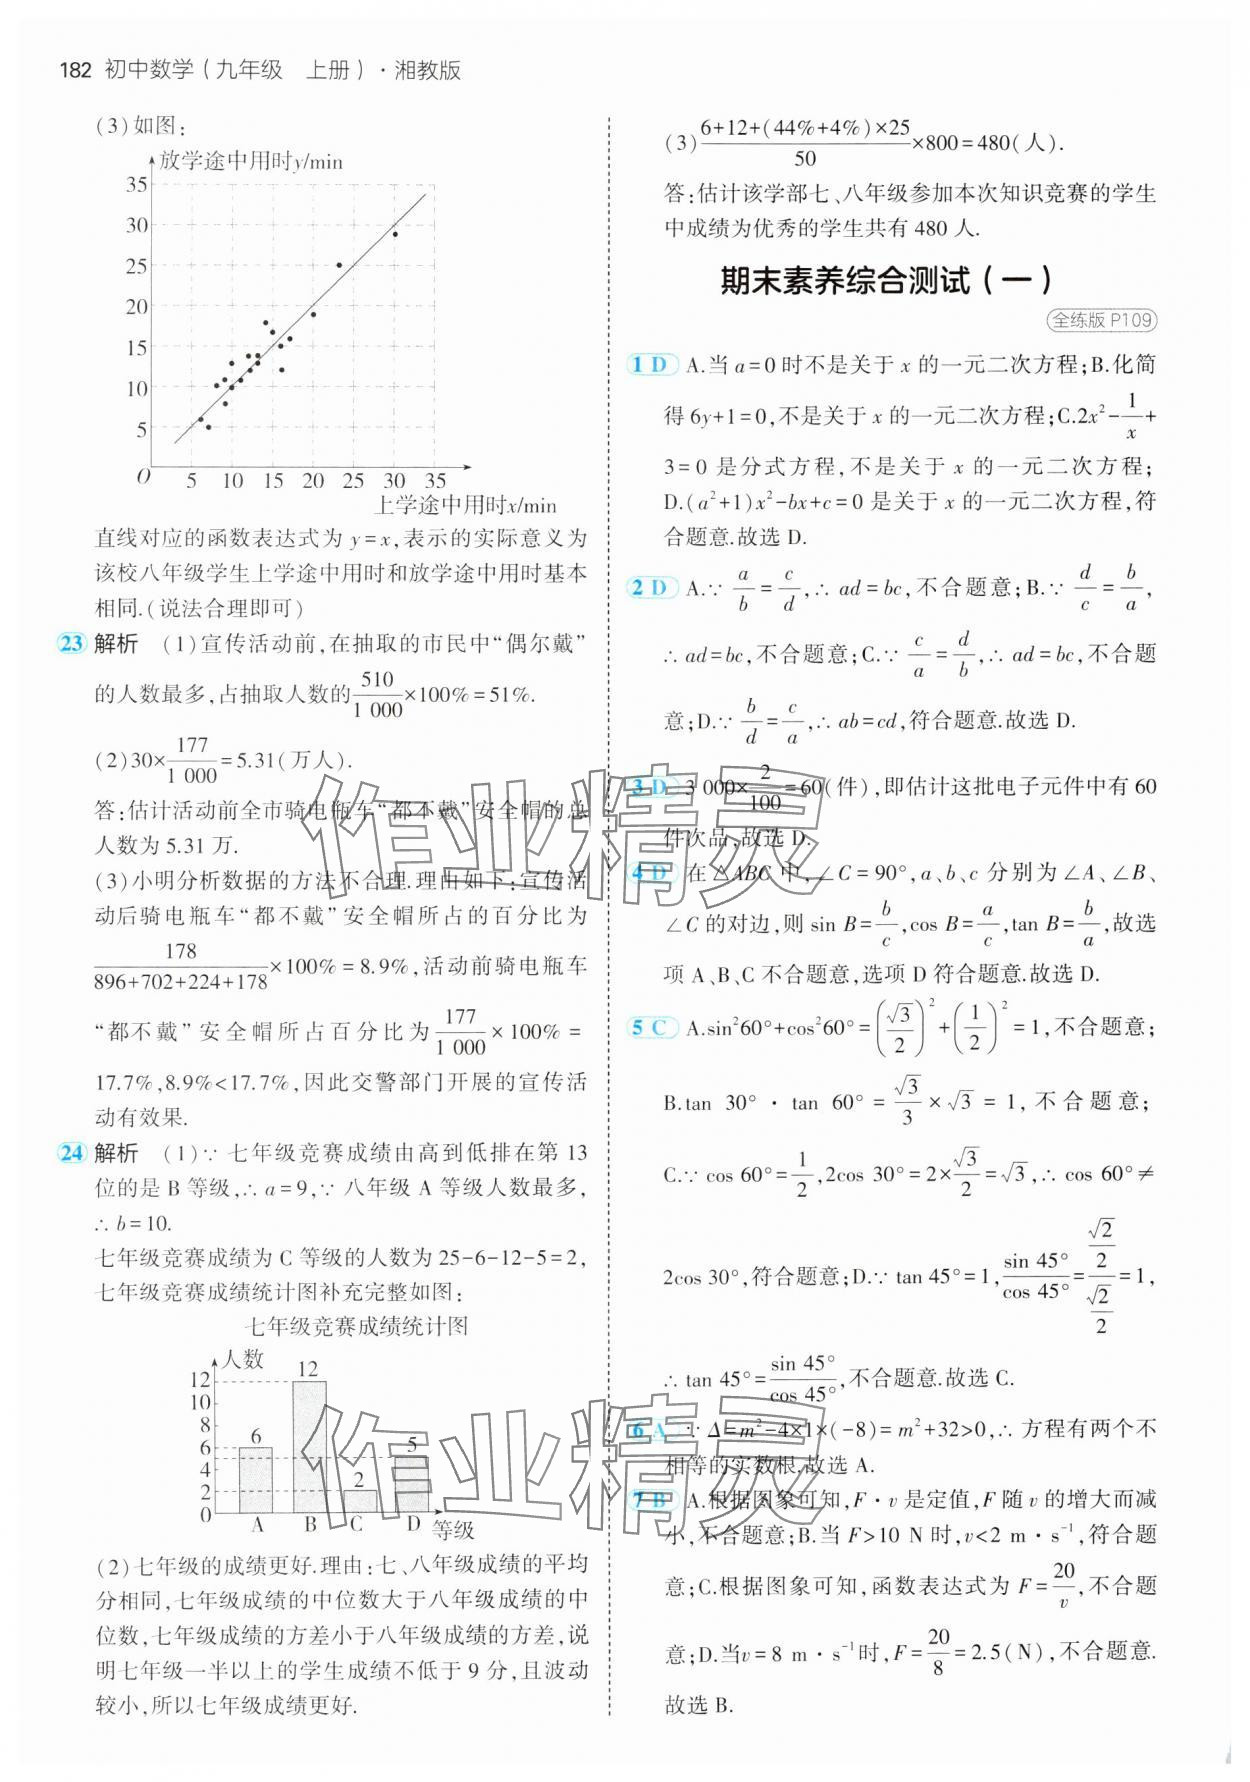 182 初中数学(九年级 上册)·湘教版
(3)如图:
放学途中用时y/min
35
30
25
20
15
10
5
O 5 10 15 20 25 30 35
上学途中用时x/min
直线对应的函数表达式为 y=x,表示的实际意义为
该校八年级学生上学途中用时和放学途中用时基本
相同.(说法合理即可)
23 解析 (1)宣传活动前,在抽取的市民中“偶尔戴”
的人数最多,占抽取人数的510/1 000×100%=51%.
(2)30×177/1 000=5.31(万人).
答:估计活动前全市骑电瓶车“都不戴”安全帽的总
人数为 5.31 万.
(3)小明分析数据的方法不合理.理由如下:宣传活
动后骑电瓶车“都不戴”安全帽所占的百分比为
178/(896+702+224+178)×100%=8.9%,活动前骑电瓶车
“都不戴”安全帽所占百分比为177/1 000×100%=
17.7%,8.9%<17.7%,因此交警部门开展的宣传活
动有效果.
24 解析 (1)∵ 七年级竞赛成绩由高到低排在第 13
位的是 B 等级,∴ a=9,∵ 八年级 A 等级人数最多,
∴ b=10.
七年级竞赛成绩为 C 等级的人数为 25-6-12-5=2,
七年级竞赛成绩统计图补充完整如图:
七年级竞赛成绩统计图
人数
12
10
8
6
4
2
0
6 12 2 5
A B C D 等级
(2)七年级的成绩更好.理由:七、八年级成绩的平均
分相同,七年级成绩的中位数大于八年级成绩的中
位数,七年级成绩的方差小于八年级成绩的方差,说
明七年级一半以上的学生成绩不低于 9 分,且波动
较小,所以七年级成绩更好.
(3)(6+12+(44%+4%)×25)/50×800=480(人).
答:估计该学部七、八年级参加本次知识竞赛的学生
中成绩为优秀的学生共有 480 人.
期末素养综合测试(一)
全练版 P109
1 D A.当 a=0 时不是关于 x 的一元二次方程;B.化简
得 6y+1=0,不是关于 x 的一元二次方程;C.2x²-1/x+
3=0 是分式方程,不是关于 x 的一元二次方程;
D.(a²+1)x²-bx+c=0 是关于 x 的一元二次方程,符
合题意.故选 D.
2 D A.∵ a/b=c/d,∴ ad=bc,不合题意;B.∵ d/c=b/a,
∴ ad=bc,不合题意;C.∵ c/a=d/b,∴ ad=bc,不合题
意;D.∵ b/d=c/a,∴ ab=cd,符合题意.故选 D.
3 D 3 000×2/100=60(件),即估计这批电子元件中有 60
件次品,故选 D.
4 D 在△ABC 中,∠C=90°,a、b、c 分别为∠A、∠B、
∠C 的对边,则 sin B=b/c,cos B=a/c,tan B=b/a,故选
项 A、B、C 不合题意,选项 D 符合题意.故选 D.
5 C A.sin²60°+cos²60°=(√3/2)²+(1/2)²=1,不合题意;
B.tan 30°·tan 60°=√3/3×√3=1,不合题意;
C.∵ cos 60°=1/2,2cos 30°=2×√3/2=√3,∴ cos 60°≠
2cos 30°,符合题意;D.∵ tan 45°=1,sin 45°/cos 45°=(√2/2)/(√2/2)=1,
∴ tan 45°=sin 45°/cos 45°,不合题意.故选 C.
6 A ∵ Δ=m²-4×1×(-8)=m²+32>0,∴ 方程有两个不
相等的实数根.故选 A.
7 B A.根据图象可知,F·v 是定值,F 随 v 的增大而减
小,不合题意;B.当 F>10 N 时,v<2 m·s⁻¹,符合题
意;C.根据图象可知,函数表达式为 F=20/v,不合题
意;D.当v=8 m·s⁻¹时,F=20/8=2.5(N),不合题意.
故选 B.
作业精灵
作业精灵